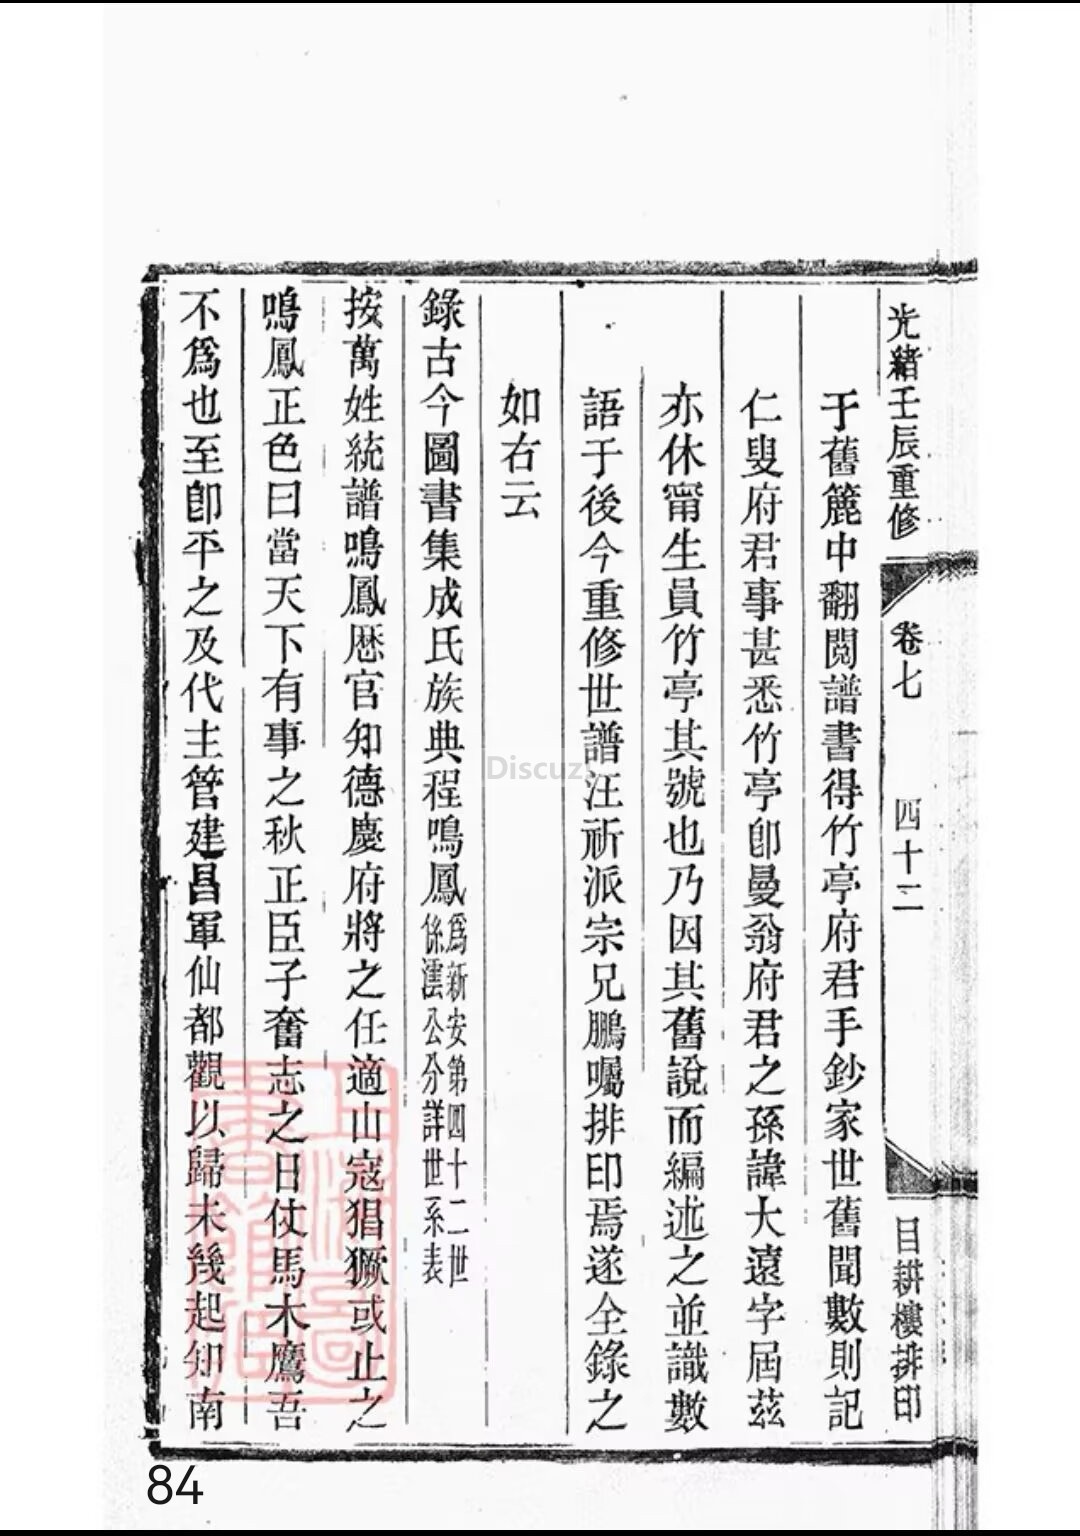 光緒壬辰重修
卷七
四十二
目耕樓排印
于舊簏中翻閱譜書得竹亭府君手鈔家世舊聞數則記
仁叟府君事甚悉竹亭卽曼翁府君之孫諱大遠字屆茲
亦休甯生員竹亭其號也乃因其舊說而編述之並識數
語于後今重修世譜汪祈派宗兄鵬囑排印焉遂全錄之
如右云
錄古今圖書集成氏族典程鳴鳳
爲新安第四十二世
係澐公分詳世系表
按萬姓統譜鳴鳳厯官知德慶府將之任適山寇猖獗或止之
鳴鳳正色曰當天下有事之秋正臣子奮志之日仗馬木鷹吾
不爲也至卽平之及代主管建昌軍仙都觀以歸未幾起知南
Discuz!
84